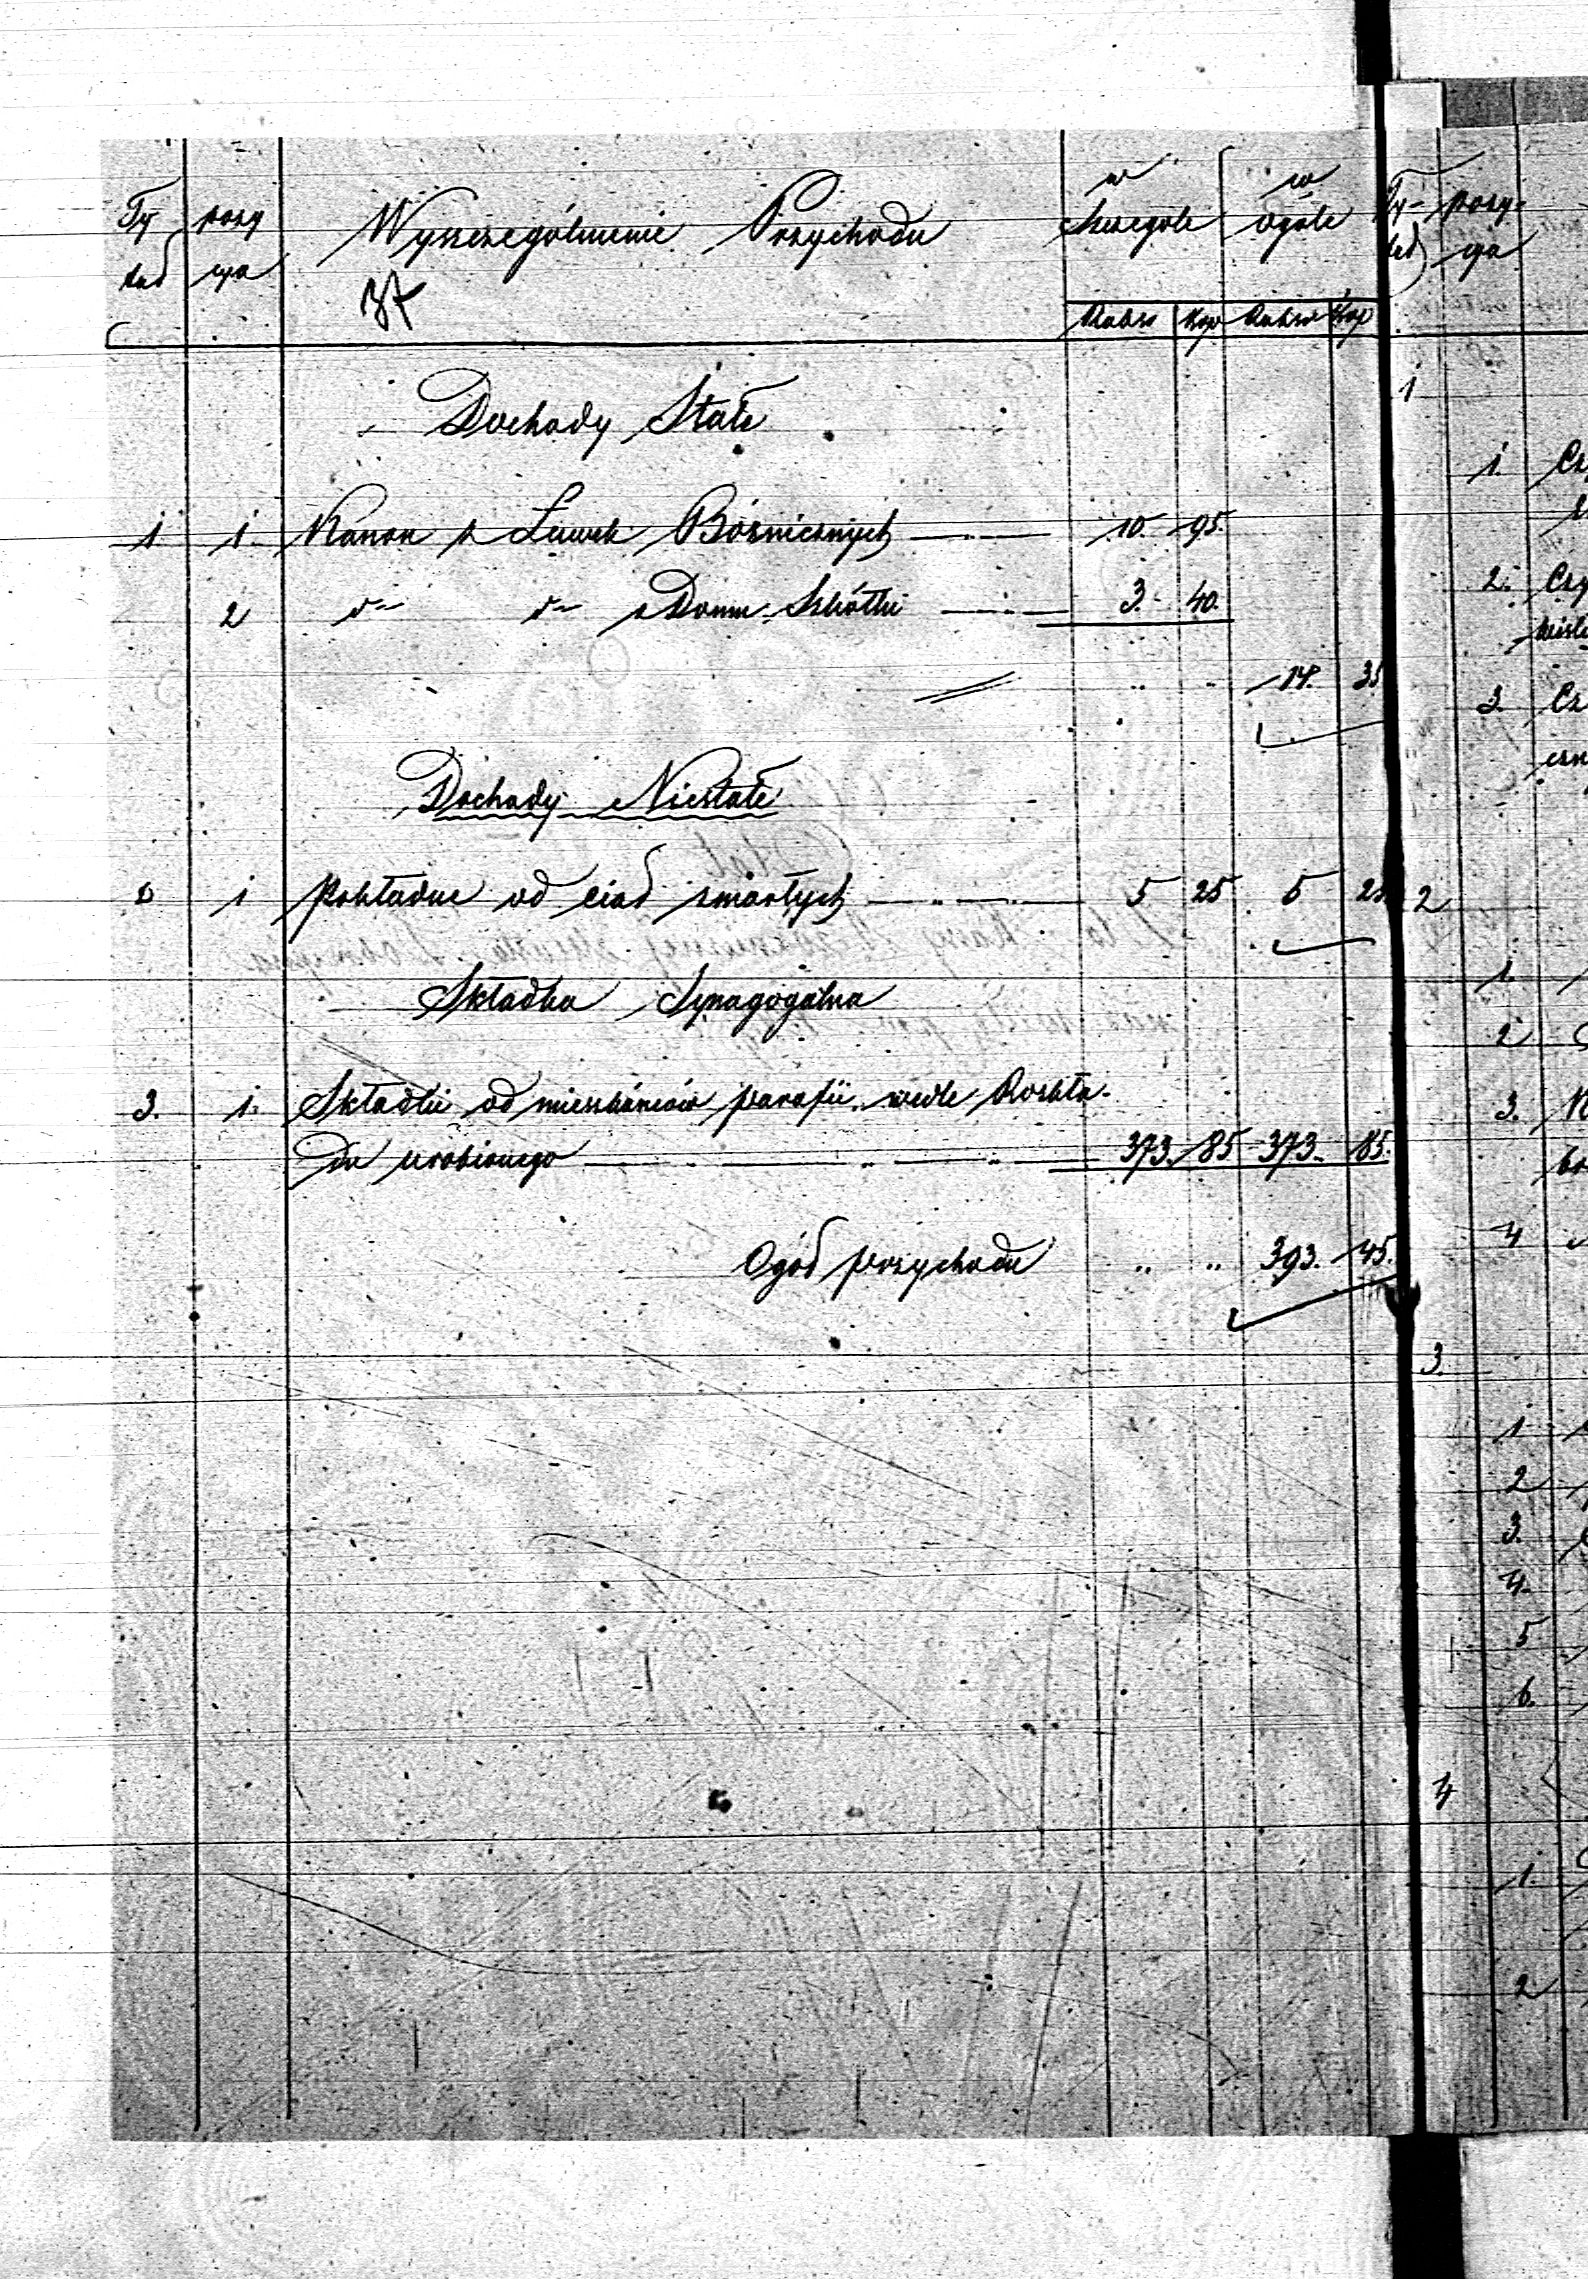 Ty- tuł | pozy cya | Wyszczególnienie Przychodu | w Szczególe | w ogóle | Ty- tuł | pozy- cya
37
Rubsr | Kop | Rubsr | Kop
Dochody Stałe
1
1. Cz
1. 1. Kanon z Ławek Bóżnicznych 10. 95.
2 d— d— z Domu Szkółki 3. 40.
2. Czy
14. 35
3. Cz
Dochody Niestałe
2 1 Pokładne od ciał zmarłych 5 25 5 25
2
1.
Składka Synagogalna
2
3. 1. Składki od mieszkańców parafii wedle Rozkła-
3.
du urobionego 373. 85 373. 85.
4
Ogół przychodu " " 393. 45.
3.
1
2
3.
4.
5
6.
4
1.
2